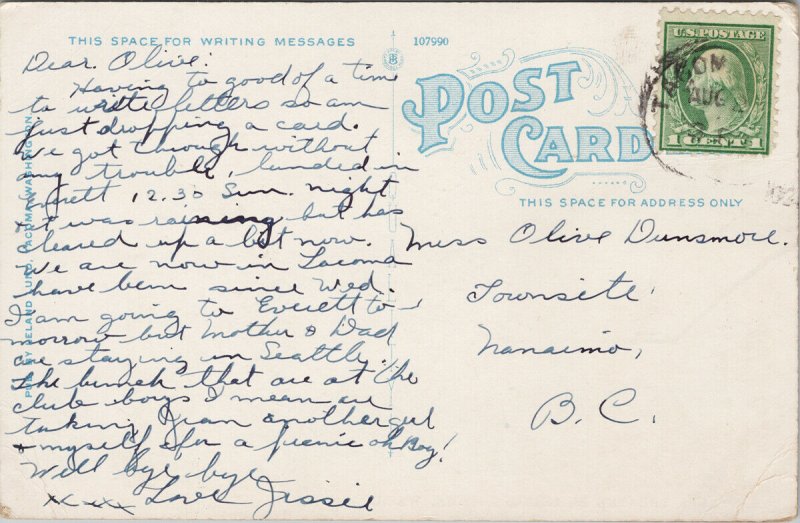 THIS SPACE FOR WRITING MESSAGES
107990
Dear Olive:
Having to good of a time
to write letters so am
just dropping a card.
We got through without
any trouble, landed in
Everett 12.30 Sun. night
& it was raining but has
cleared up a bit now.
We are now in Tacoma
have been since Wed.
I am going to Everett to-
morrow but Mother & Dad
are staying in Seattle.
The bunch that are at the
club boys I mean are
taking Jean another girl
& myself for a picnic oh Boy!
Well bye bye
xxxx Love Jessie
POST CARD
U.S. POSTAGE
1 CENT 1
TACOM
AUG
THIS SPACE FOR ADDRESS ONLY
Miss Olive Dunsmore.
Townsite
Nanaimo,
B.C.
LUND, TACOMA, WASHINGTON